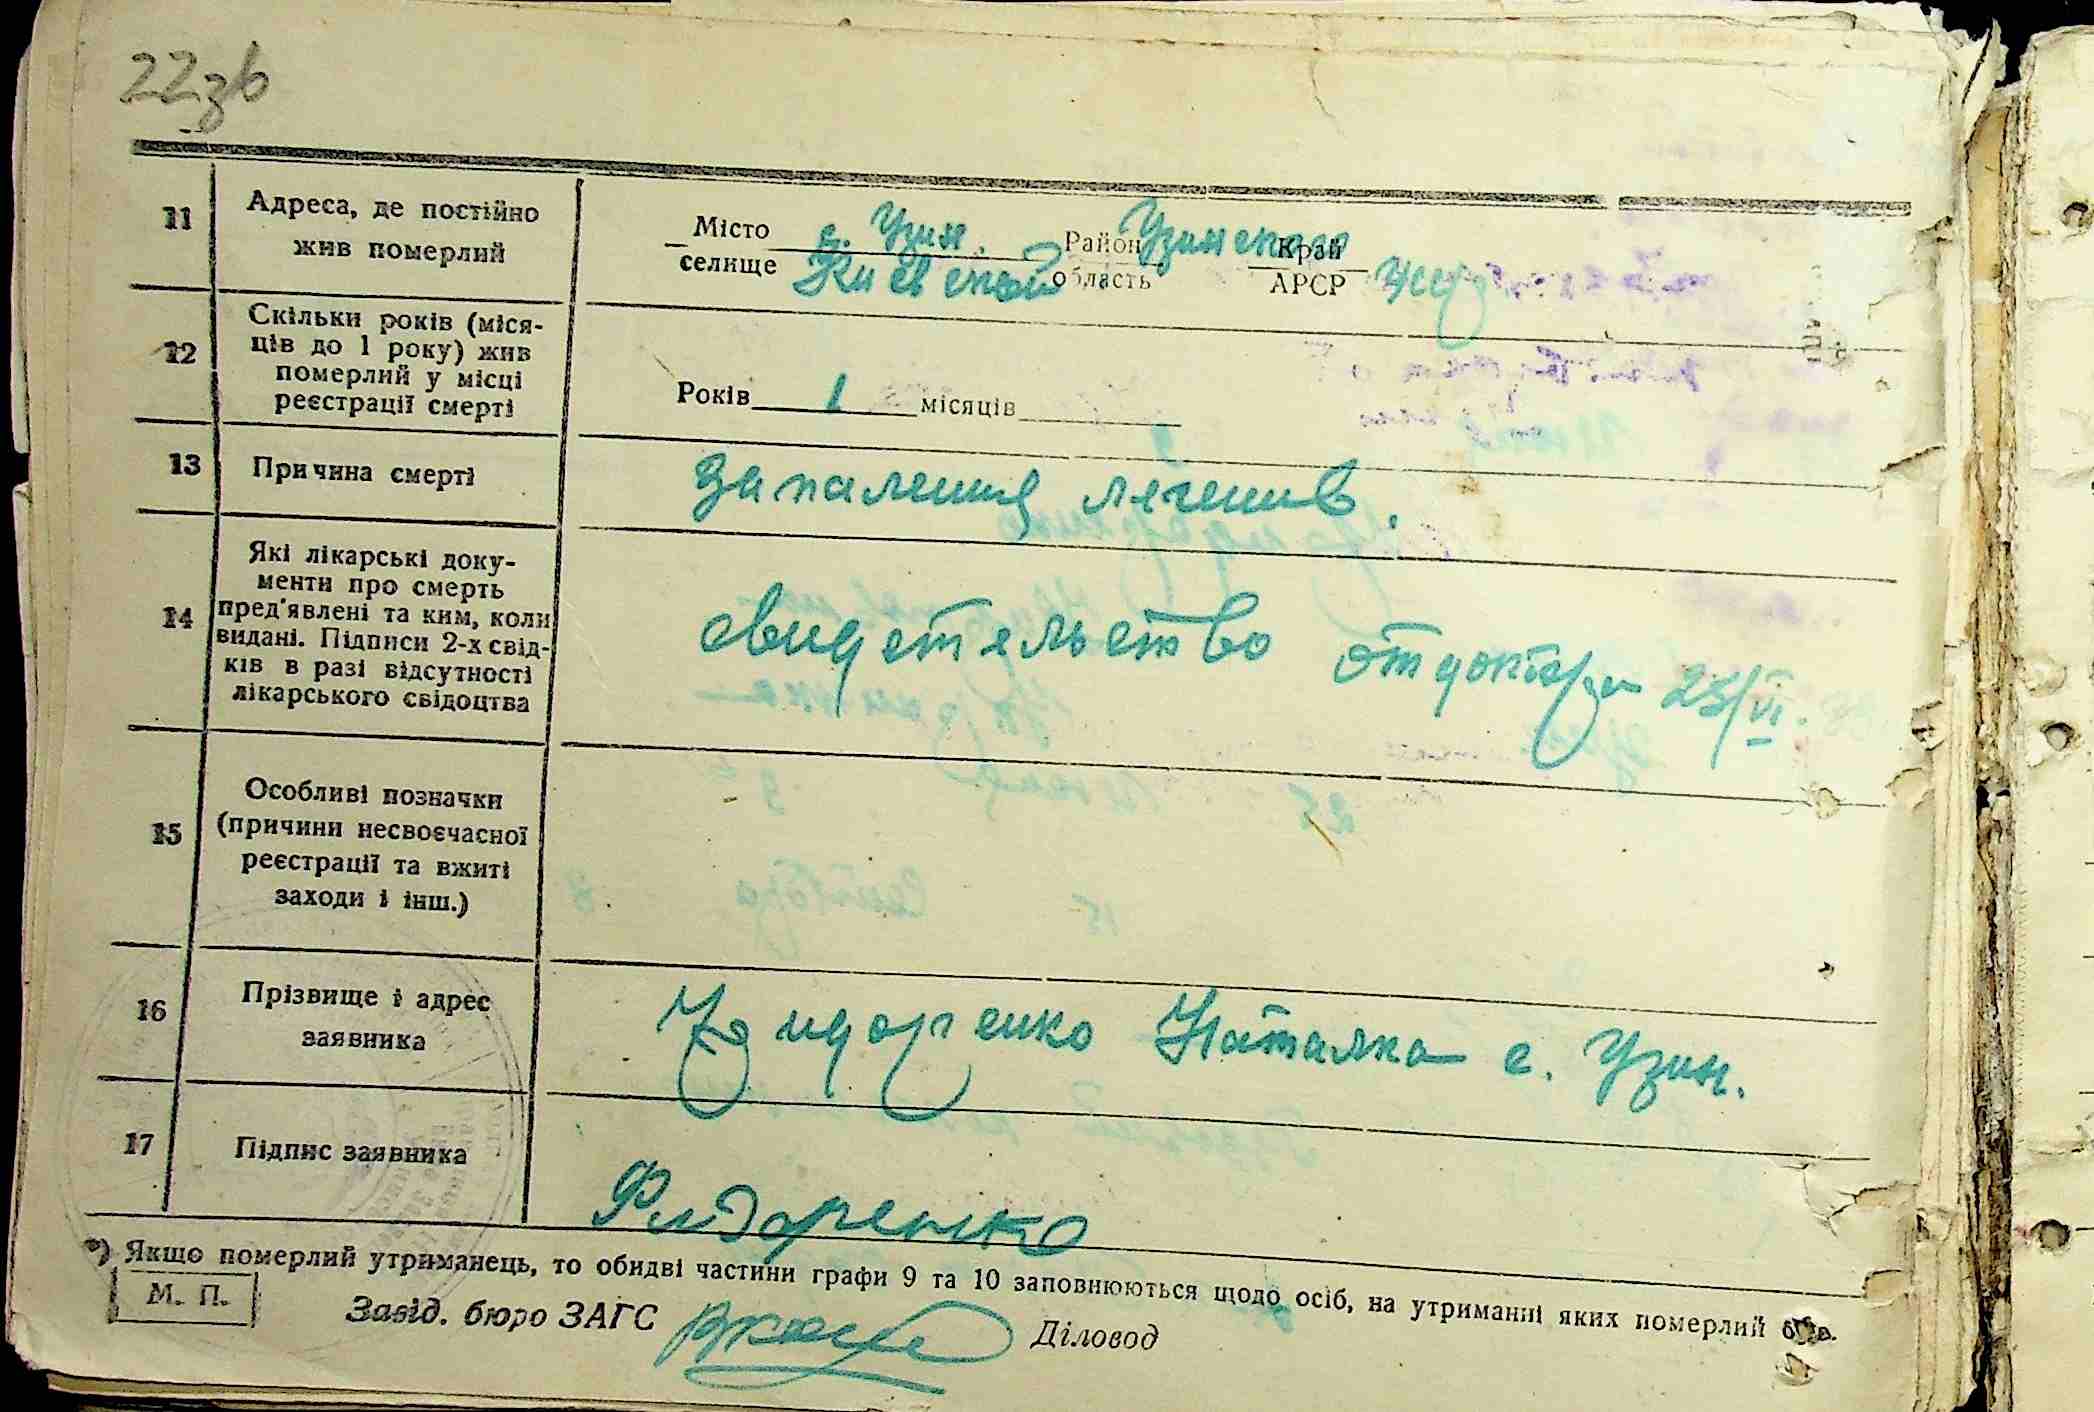 22зв
11 Адреса, де постійно жив померлий
Місто с. Узин. Район Узинского Край
селище Киевской область АРСР
12 Скільки років (міся-
ців до 1 року) жив
померлий у місці
реєстрації смерті
Років 1 місяців
13 Причина смерті
Запаления легенив.
14 Які лікарські доку-
менти про смерть
пред'явлені та ким, коли
видані. Підписи 2-х свід-
ків в разі відсутності
лікарського свідоцтва
свидетельство от доктора 25/VI.
15 Особливі позначки
(причини несвоєчасної
реєстрації та вжиті
заходи і інш.)
16 Прізвище і адрес
заявника
Хвидоренко Наталка с. Узин.
17 Підпис заявника
Фидоренко
*) Якщо померлий утриманець, то обидві частини графи 9 та 10 заповнюються щодо осіб, на утриманні яких померлий був.
М. П.
Завід. бюро ЗАГС Діловод